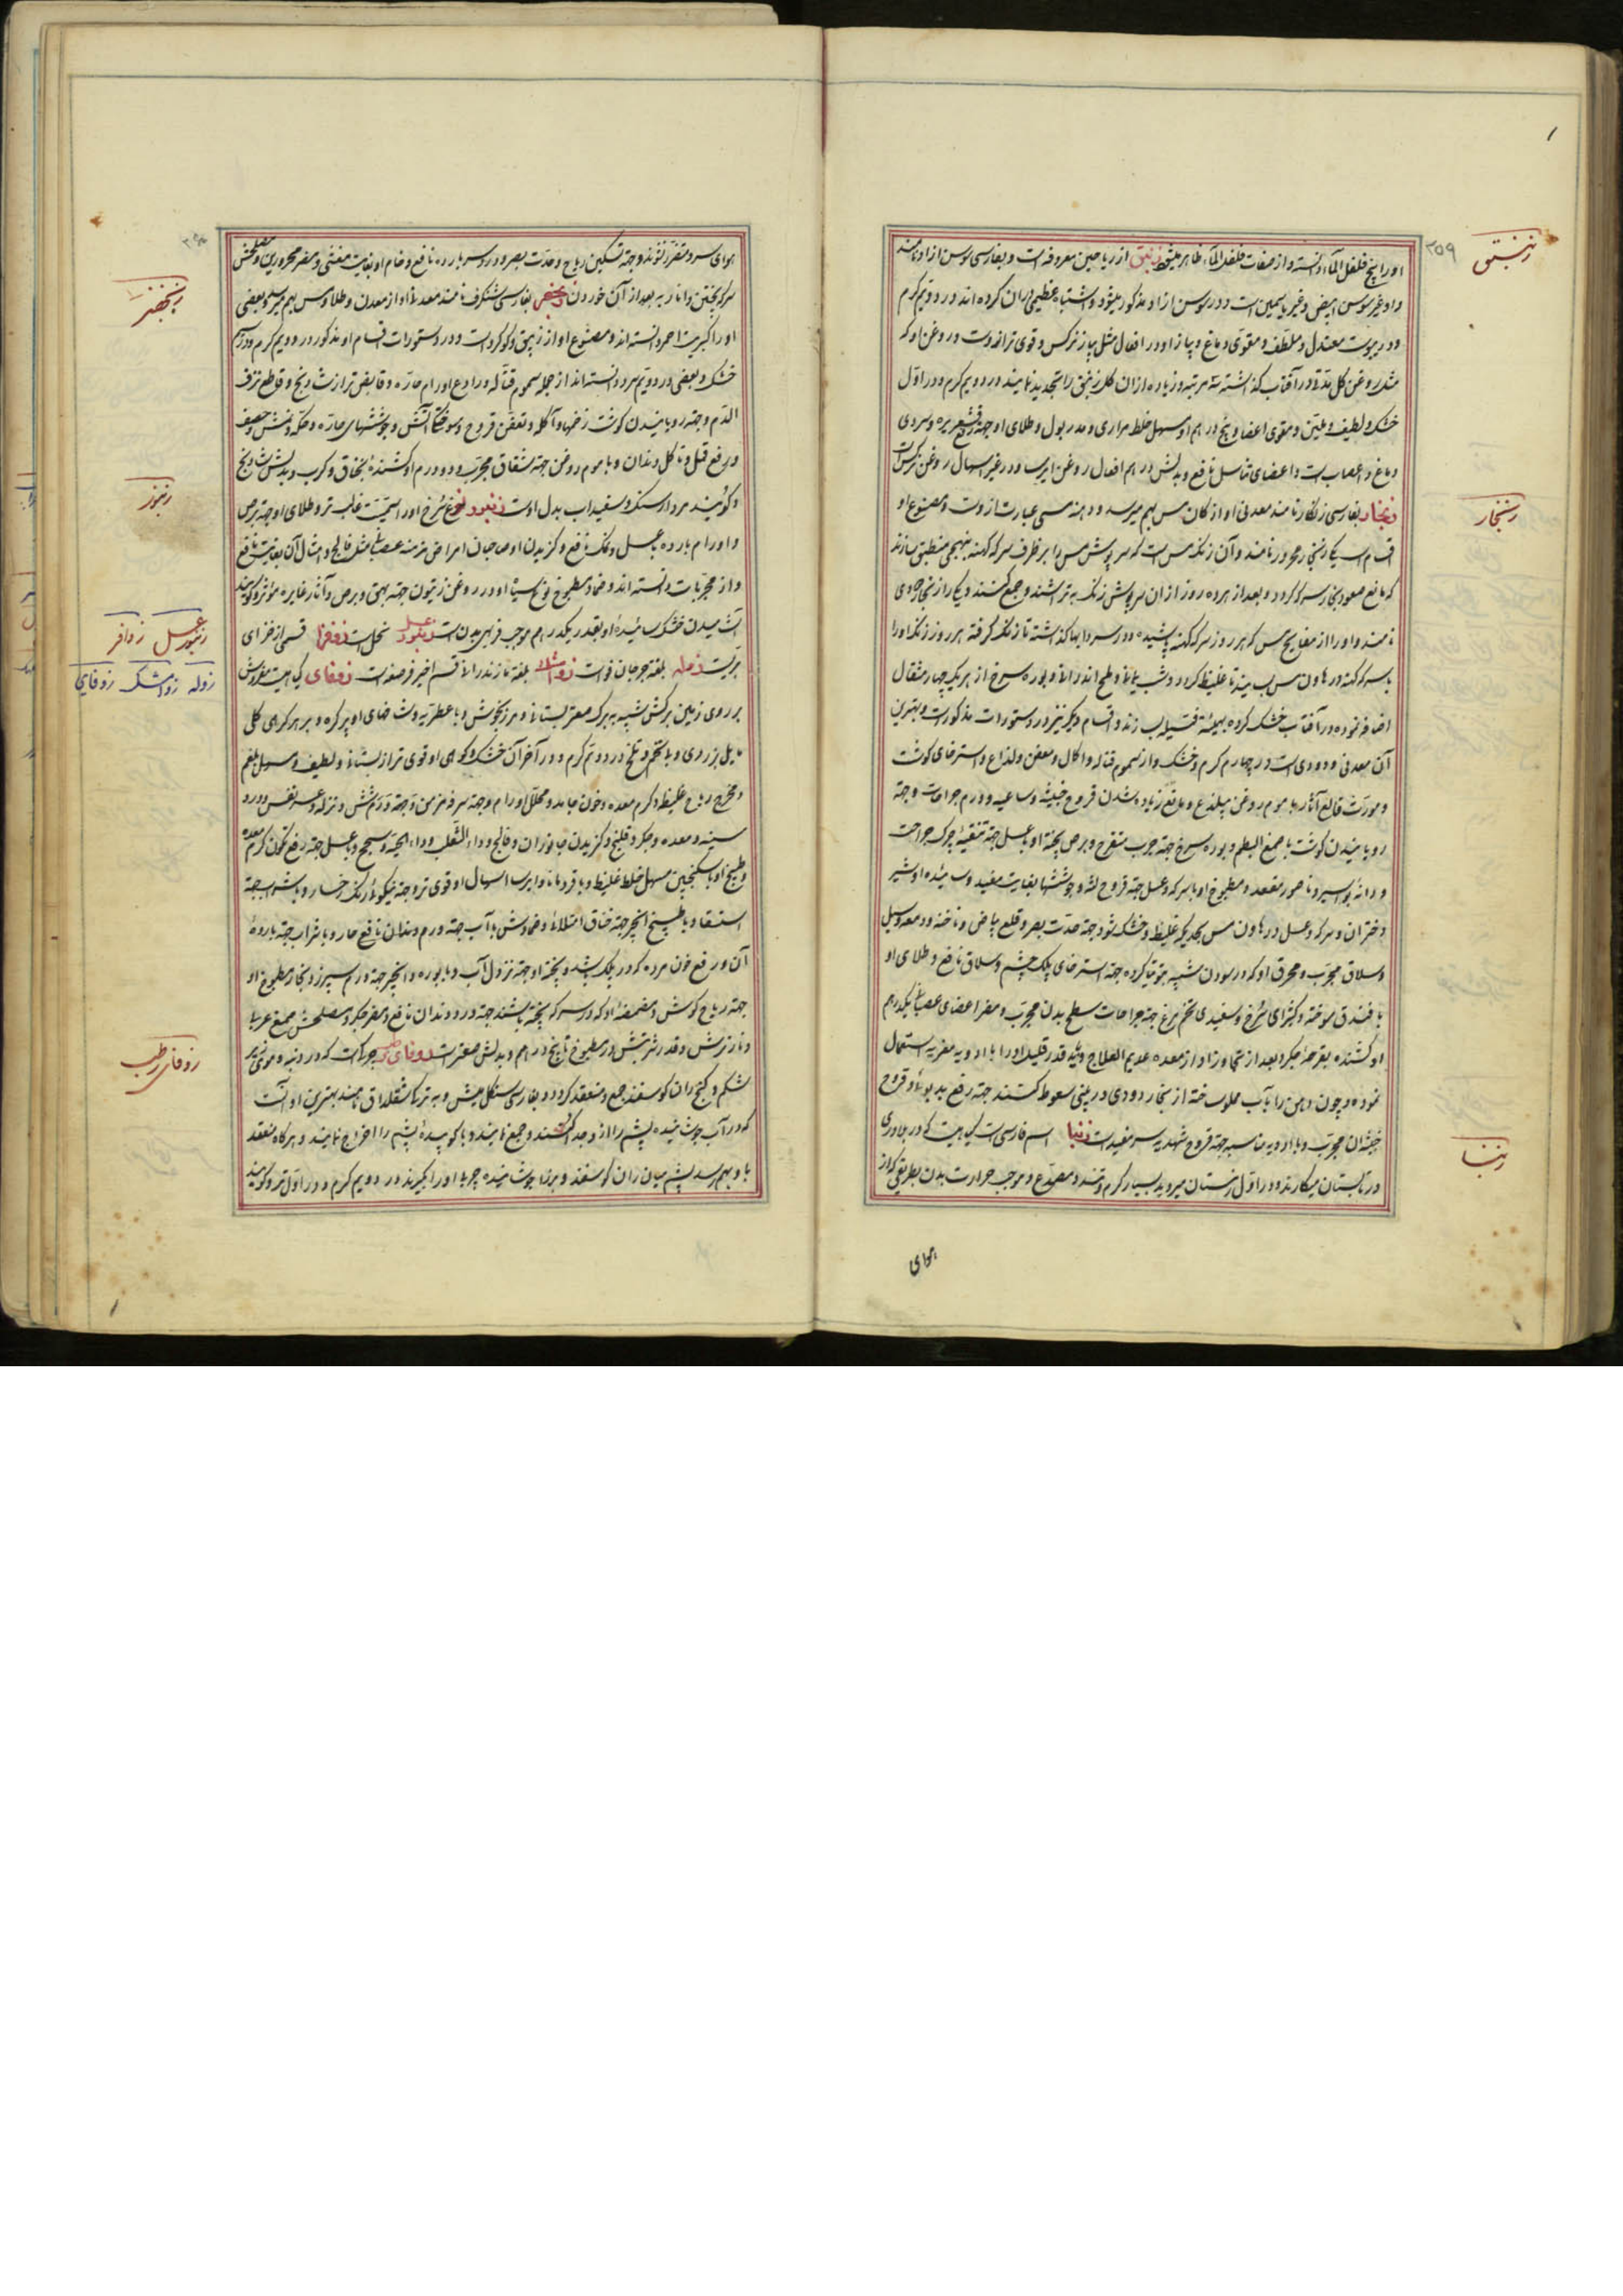 اورا بیخ فلفل الماء دانسته و از صفات فلفل الماء ظاهر میشود زنبق از ریاحین معروفه است و بفارسی سوسن ازاد نامند
و او غیر سوسن ابیض و غیر یاسمین است و در سوسن ازاد مذکور میشود و اشتباه عظیمی در ان کرده اند در دویم گرم
و در یبوست معتدل و ملطف و مقوی دماغ و پیاز او در افعال مثل پیاز نرکس و قوی تر از وست و روغن او که
خشک و لطیف و ملین و مقوی اعضا و پنج درهم او مسهل خلط مراری و مدر بول و طلای او جهة قشعریره و سردی
دماغ و اعصاب و اعضای تناسل نافع و بدلش در اکثر افعال روغن ایرسا و در غیر اسهال روغن نرکس است
زنجار بفارسی زنکار نامند معدنی او از کان مس بهم میرسد و دهنه مسی عبارت از وست و مصنوع او
که مانع صعود بخار سرکه کردد و بعد از هر ده روز از ان سرپوش زنک بتراشند و جمع کنند و یکی را زنجار دودی
نامند و او را از صفایح مس که هر روز سرکه کهنه پاشیده و در سردابها کذاشته تا زنک گرفته هر روز زنک او را
با سرکه کهنه در هاون مس بسایند تا غلیظ کردد و شب یمانی و ملح اندرانی و بوره سرخ از هر یک چهار مثقال
اضافه نموده در آفتاب خشک کرده بهیئة فتیله بسازند و اقسام دیگر نیز در دستورات مذکور است و بهترین
آن معدنی و دودی است در چهارم گرم و خشک و از سموم قتاله و اکال و معفن و لذاع و استرخای کوشت
و مورث قالع آثار با موم روغن بیلذع و مانع زیاده شدن قروح خبیثه و ساعیه و ورم جراحات و جهة
رویانیدن کوشت با صمغ البطم و بوره سرخ جهة جرب متقرح و برص پخته او با عسل جهة تنقیه چرک جراحت
و دانه بواسیر و ناصور مقعد و مطبوخ او با سرکه و عسل جهة قروح لثه و جوششها بغایت مفید و سائیده او با شیر
دختران و سرکه و عسل در هاون مس بحدیکه غلیظ و خشک شود جهة حدت بصر و قلع بیاض و ناخنه و دمعه و سبل
و سلاق مجرب و محرق او که در بودن شبیه بتوتیا کرده جهة استرخای پلک چشم و سلاق نافع و طلای او
با فندق سوخته و کتیرای سرخ و سفیدی تخم مرغ جهة جراحات سطح بدن مجرب و مضر اعضای عصبانی و یکدرهم
او کشنده بقرحه جکر و بعد از تجاوز او از معده عدیم العلاج و قدر قلیل او را با ادویه مغریه استعمال
نموده و چون دهن را بآب مملو ساخته از زنجار دودی در بینی سعوط کنند جهة رفع بدبوئی و قروح
خیشه ان مجرب و با ادویه مناسبه جهة قروح شهدیه سر مفید است زنبا اسم فارسی است گیاهیست که در بلاد ری
در تابستان میکارند و در اول زمستان میروید بسیار گرم و تند و مصدع و موجب حرارت بدن بطریقی که از
هوای
زنبق
۲۵۹
زنجار
زنبا
هوای سرد متضرر نشوند و جهة تسکین ریاح و حدت بصر و درد سر بارده نافع و خام او بغایت مغثی و مضر محرورین و مصلحش
سرکه پختن و انار به بعد از آن خوردن زنجفر بفارسی شنکرف نامند معدنی او از معدن طلا و مس بهم میرسد و بعضی
او را کبریت احمر دانسته اند و مصنوع او از زیبق و کوکرد است و در دستورات اقسام او مذکور در دویم گرم و در سیم
خشک و بعضی در دویم سرد دانسته اند از جمله سموم قتاله و رادع اورام حاره و قابض تر از شادنج و قاطع نزف
الدم و جهة رویانیدن کوشت زخمها و آکله و تعفن قروح و سوختگی آتش و جوششهای حاره و حکه
و رفع قمل و تاکل دندان و با موم روغن جهة شقاق مجرب و دو درم او کشنده بخناق و کرب و بدلش شادنج
و کویند مردارسنک و سفیداب بدل اوست زنبور نوع سرخ او را سمیت غالب تر و طلای او جهة برص
و اورام بارده با عسل و نمک نافع و گزیدن او صاحبان امراض مزمنه عصبانی مثل فالج و امثال آن بغایت نافع
و از مجربات دانسته اند و ضماد مطبوخ نوع سیاه او در روغن زیتون جهة بهق و برص و آثار غایره مؤثر و کویند
آشامیدن خشک سائیده او بقدر یکدرهم موجب فربهی بدن است زنبور عسل نحل است زوفرا قسمی از خزای
بریست زوله بلغة جرجان فوه است زواشک بلغة مازندرانی قسم اخیر فرصعنه است زوفای گیاهیست مفروش
بر روی زمین برکش شبیه به برک صعتر بستانی و مرزنجوش و با عطریه و شاخهای او پر کره و بر هر کرهی کلی
مایل بزردی و بیتخم و تلخ در دویم گرم و در آخر آن خشک و کوهی او قوی تر از بستانی و لطیف و مسهل بلغم
و مخرج ریاح غلیظ و کرم معده و خون جامد و محلل اورام و جهة سرفه مزمن و جهة ورم شش و نزله و عسر نفس و درد
سینه و معده و جکر و قولنج و گزیدن جانوران و فالج و داء الثعلب و داء الحیة و سحج و با عسل جهة رفع تکون کرم معده
و طبیخ او با سکنجبین مسهل خلط غلیظ و با قردمانا و ایرسا اسهال او قوی تر و جهة نیکوئی رنک رخسار و با شراب جهة
استسقا و با طبیخ انجیر جهة خناق امتلائی و ضمادش با آب جهة ورم دندان نافع حار و با شراب جهة بارده
آن و رفع خون مرده که در پلک باشد و پخته او جهة نزول آب و با بوره و انجیر جهة ورم سپرز و بخار مطبوخ او
جهة ریاح کوش و مضمضه او که در سرکه پخته باشند جهة درد دندان نافع و مضر جکر و مصلحش صمغ عربی
و قدر شربتش در مطبوخ تا پنج درهم و بدلش صعتر است زوفای رطب چرکی است که در دنبه و موی زیر
شکم و کنج ران کوسفند جمع و منعقد کردد و بفارسی سنکل میش و به ترکی شقلداق نامند بهترین او آنست
که در آب جوشانیده پشم را از وجدا کنند و جمع نمایند و با کوبیده پشم را اخراج نمایند و هرگاه منعقد
با و بهم رسد پشم میان ران کوسفند و بز را جوشانیده چربی او را بگیرند در دویم گرم و در اول تر و کویند
زنجفر
زنبور
زنبور عسل زوفرا
زوله زواشک زوفای
زوفای رطب